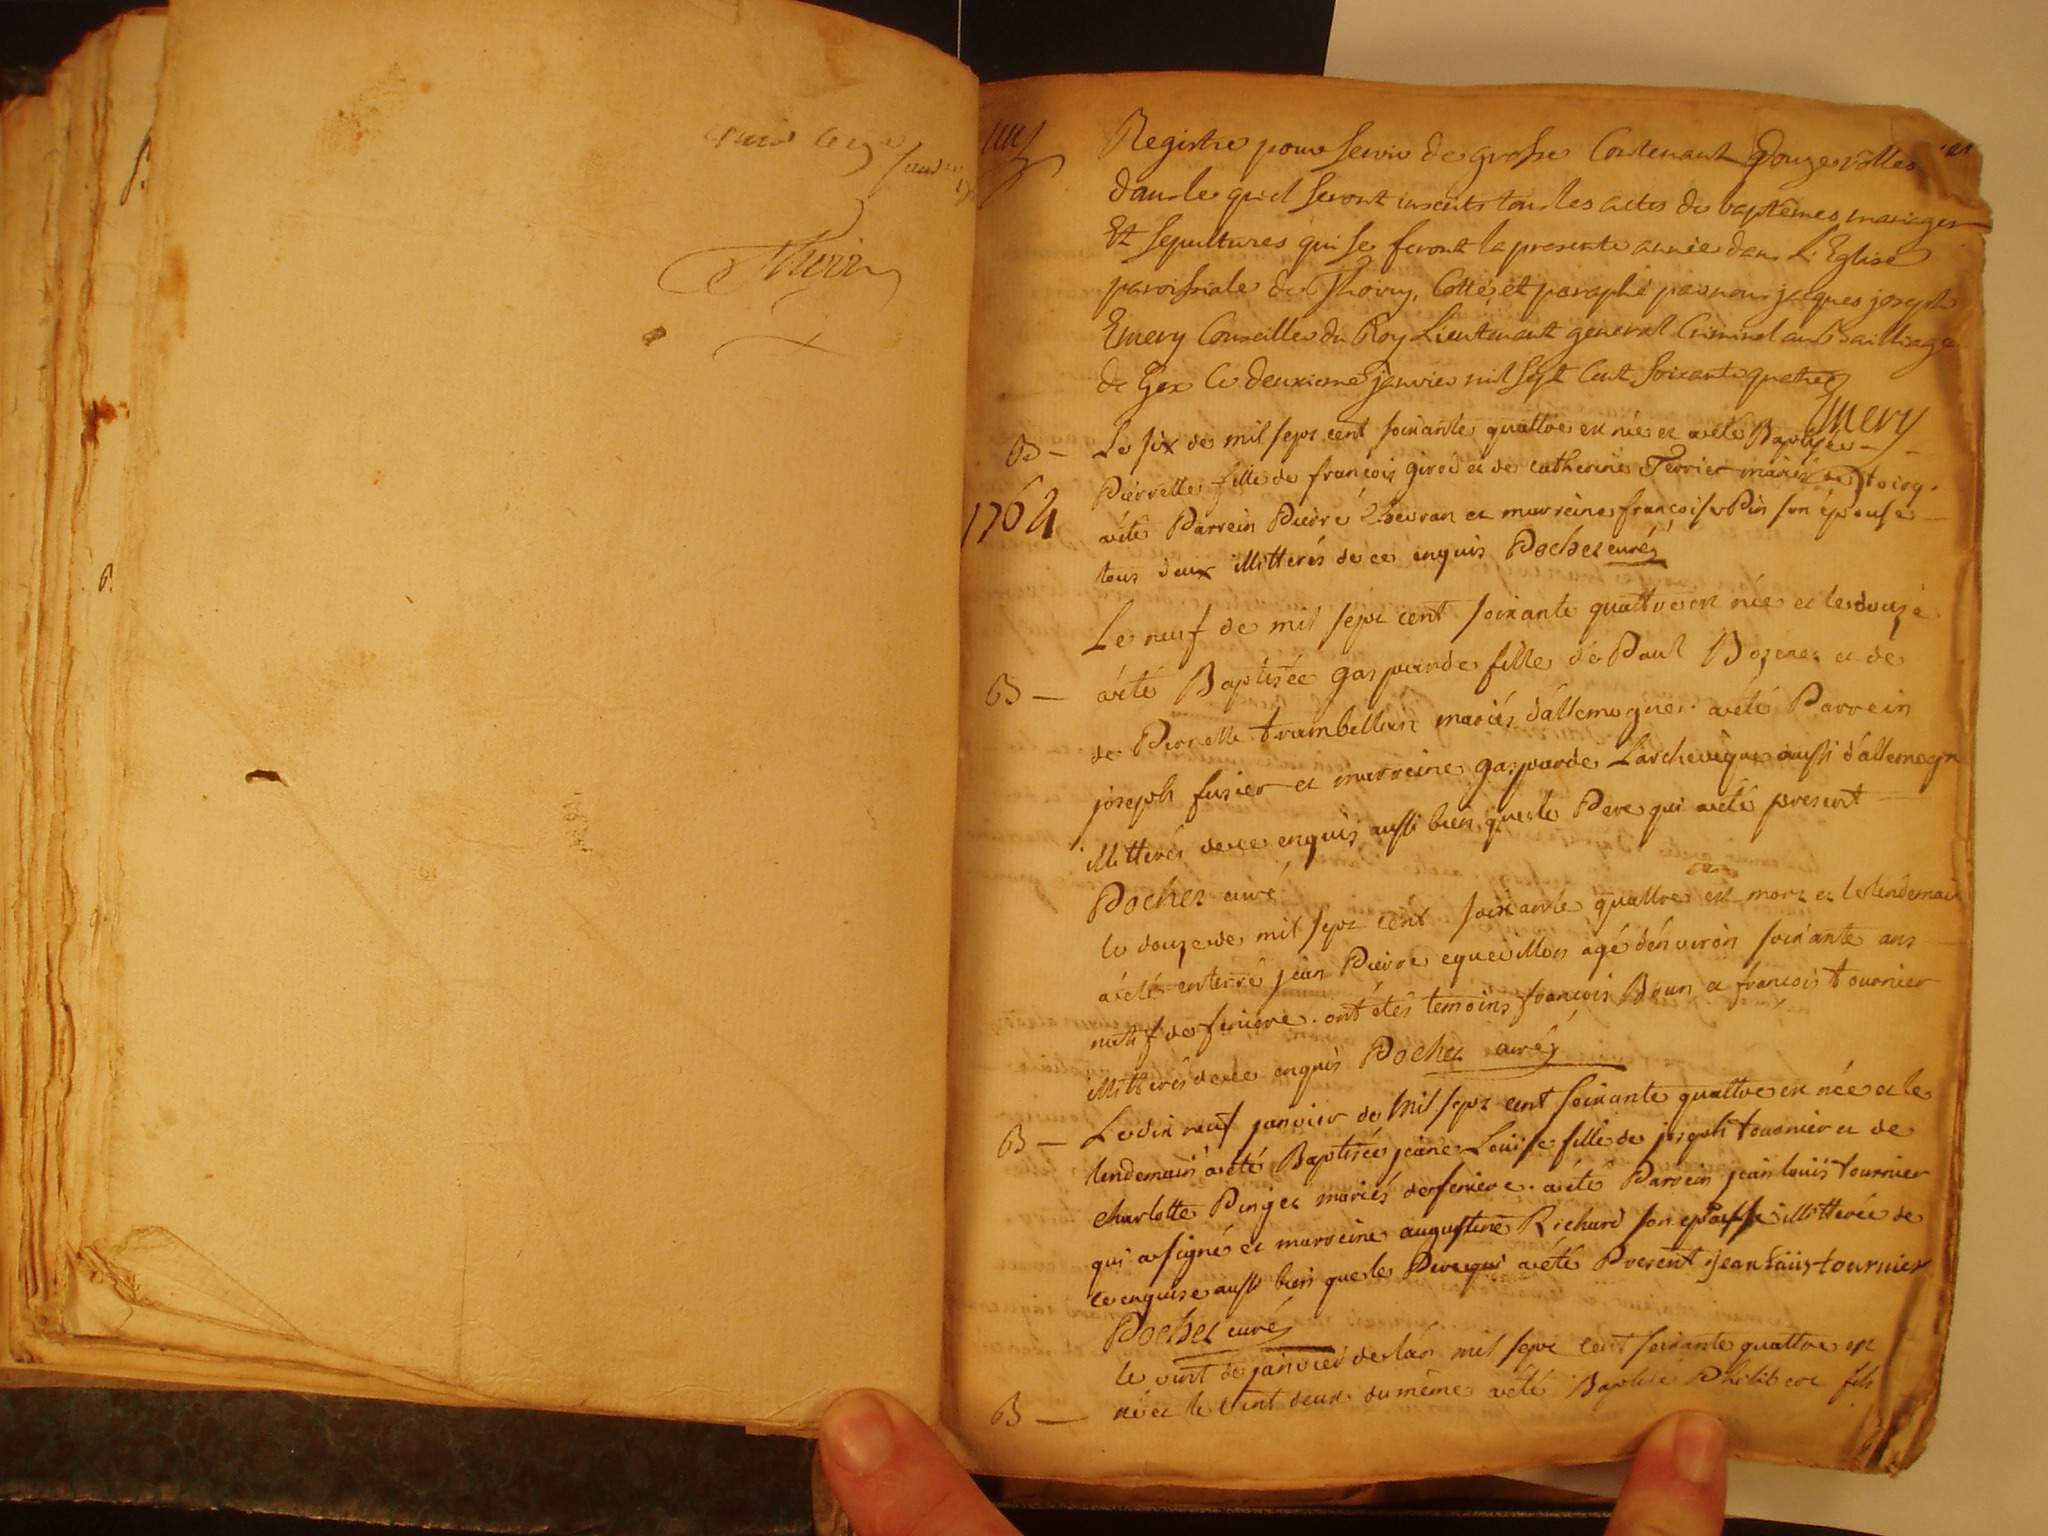 Thoiry
Registre pour servir de grosse Contenant Douze rolles
dans le quel seront inscrits tous les actes de baptêmes mariages
Et sepultures qui se feront la presente année dans L'Eglise
paroissiale de Thoiry, Cotté et paraphé par nous jacques joseph
Emery Conseiller du Roy Lieutenant general Criminel au Bailliage
de Gex Ce deuxieme janvier mil sept Cent soixante quatre
Emery
B — Le six de mil sept cent soixante quattre est née et a été Baptisée
Pierrette fille de françois girod et de catherine Terrier mariés de toiry.
1764
a été Parrein Pierre Chevran et marreine françoise Pin son épouse
tous deux illitterés de ce enquis Pochet curé
Le neuf de mil sept cent soixante quattre est née et le douze
B — a été Baptisée gasparde fille de Paul Bozenet et de
de Pernette trambellan mariés d'allemogne. a été Parrein
joseph fusier et marreine gasparde Larcheveque aussi d'allemogn
illitterés de ce enquis aussi bien que le Pere qui a été present
Pochet curé
le douze de mil sept cent soixante quattre est mort et le lendemain
a été enterré jean Pierre egueillon agé d'environ soixante ans
natif de feniere. ont étés temoins françois Brun et francois tournier
illitterés de ce enquis Pochet curé
B — Le dix neuf janvier de Mil sept cent soixante quattre est née et le
lendemain a été Baptisée jeane Louise fille de joseph tournier et de
charlotte Pinget mariés de feniere. a été Parrein jean louis tournier
qui a signé et marreine augustine Richard son epouse illitterée de
ce enquise aussi bien que le Pere qui a été Present jean Louis tournier
Pochet curé
le vint de janvier de l'an mil sept cent soixante quattre est
B — né et le vint deux du même a été Baptisé Philibert fils